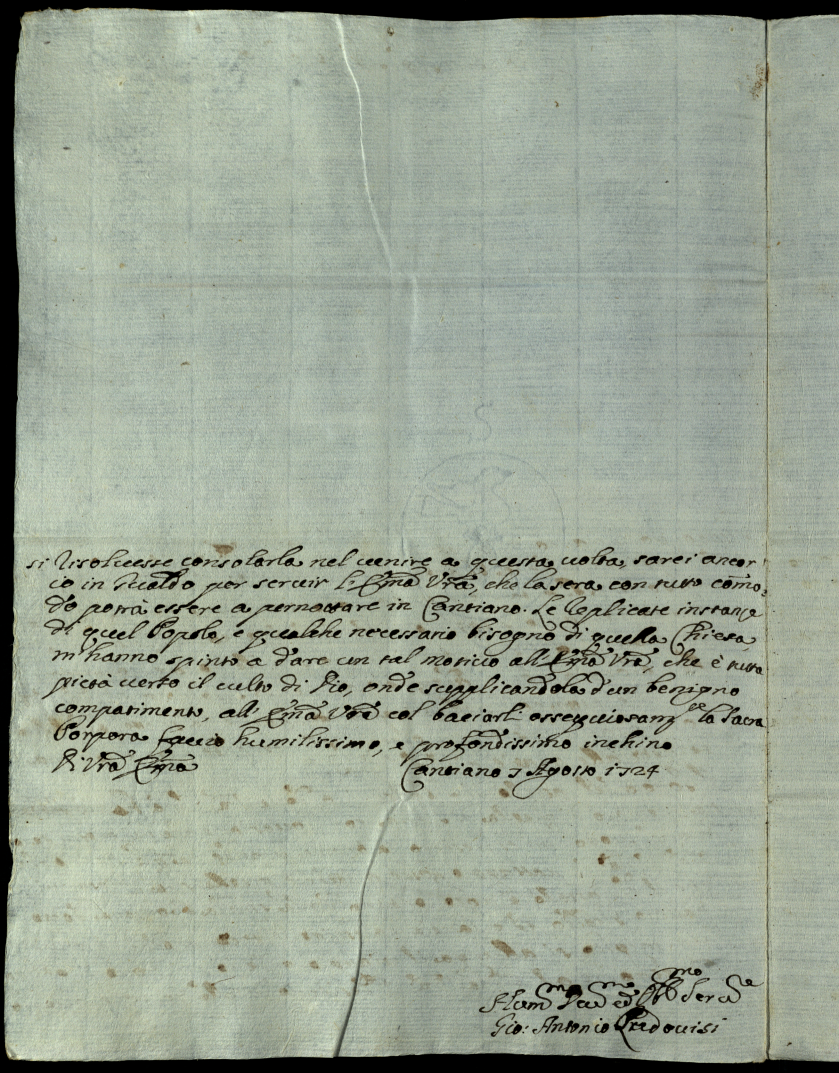 si risoluesse consolarla nel uenire a questa uolta, sarei ancor
io in Gualdo per seruir l'. Em̃a Vrã, che la sera con tutto com̃o=
do potrà essere a pernottare in Cantiano. Le replicate instanze
di quel Popolo, e qualche necessario bisogno di quella Chiesa
m'hanno spinto a dare un tal motiuo all'Em̃a Vrã, che è tutta
pietà uerso il culto di Dio, onde supplicandola d'un benigno
compatimento, all'Em̃a Vrã col baciarli ossequiosamᵗᵉ la Sacra
Porpora faccio humilissimo, e profondissimo inchino
Di Vrã Em̃a Cantiano 7 Agosto 1724
Humᵐᵒ Deuᵐᵒ ed Obbᵐᵒ Seruᵉ
Gio: Antonio